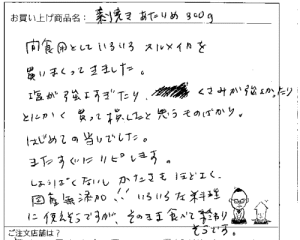 お買い上げ商品名: 素焼きあたりめ 300g
間食用としていろいろスルメイカを
買いまくってきました。
塩が強よすぎたり、くさみが強よかったり
とにかく買って損したと思うものばかり。
はじめての当りでした。
またすぐにリピします。
しょっぱくないし かたさもほどよく
国産無添加!! いろいろな料理
に使えそうですが、そのまま食べて終わり
そうです。
ご注文店舗は?